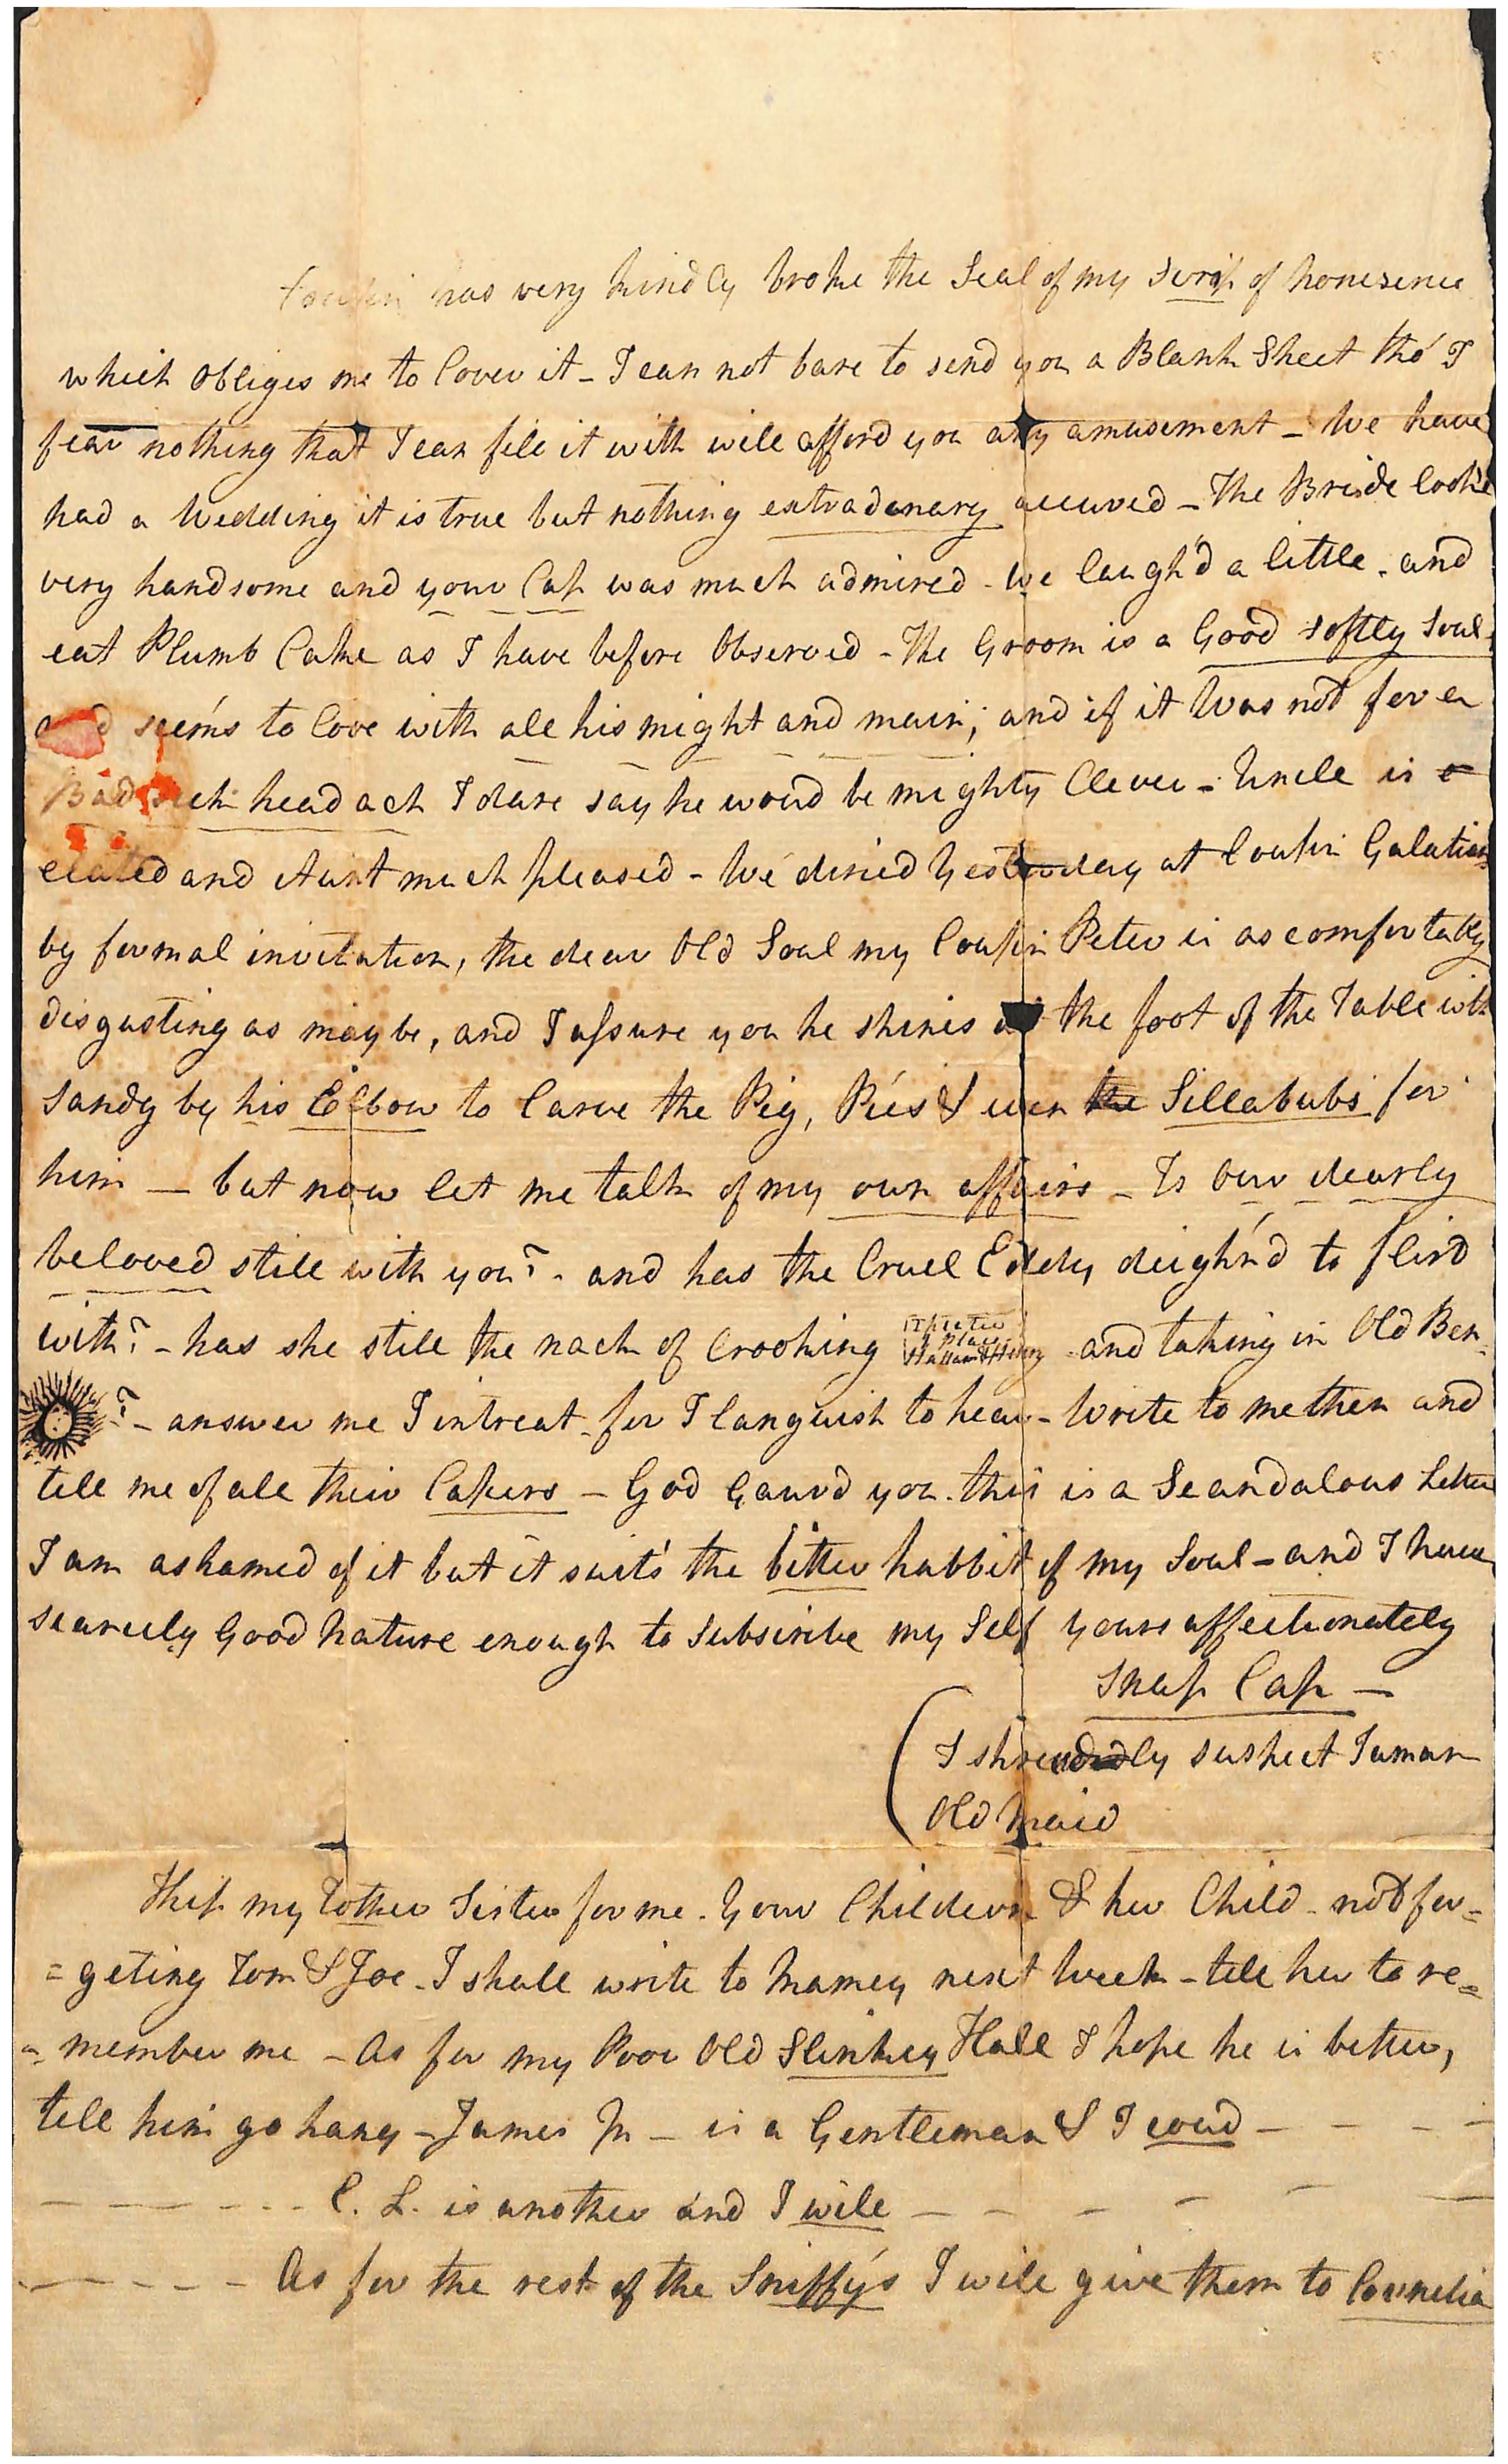 Cousin has very kindly broke the Seal of my scrip of nonesence
which obliges me to Cover it - I can not bare to send you a Blank Sheet tho' I
fear nothing that I can fill it with will afford you any amusement - We have
had a Wedding it is true but nothing extradonary accured - The Bride look'd
very handsome and your Cap was much admired - We laugh'd a little - and
eat Plumb Cake as I have before Observed - The Groom is a Good softly Soul -
and seem's to love with all his might and main; and if it was not for a
Bad sick head ach I dare say he wou'd be mighty Clever - Uncle is
elated and Aunt much pleased - We dined Yesterday at Cousin Galatian
by formal invitation, the dear Old Soul my Cousin Peter is as comfortably
disgusting as may be, and I assure you he shines at the foot of the Table with
Sandy by his Elbow to Carve the Pig, Pies & even the Sillabubs for
him — but now let me talk of my own affairs - Is Our dearly
beloved still with you? - and has the Cruel Eddy deigh'nd to flird
with? - has she still the nack of Crooking and taking in Old Ben -
? - answer me I intreat for I languish to hear - Write to me then and
tell me of all their Capers - God Gaurd you - this is a Scandalous Letter
I am ashamed of it but it suit's the bitter habbit of my Soul - and I have
scarcely Good Nature enough to subscribe my Self yours affectionately
Snap Cap —
I shrewdly suspect I am an
Old Maid
my tother Sister for me - Your Childern & her Child - not for=
=geting Tom & Joe - I shall write to Mamey next Week - tell her to re=
=member me - As for my Poor Old Slinkey Hall I hope he is better,
tell him go hang - James M - is a Gentleman & I coud - - - -
- - - - - C. L. is another and I will - - - - -
- - - - - As for the rest of the Sniffy's I will give them to Cornelia